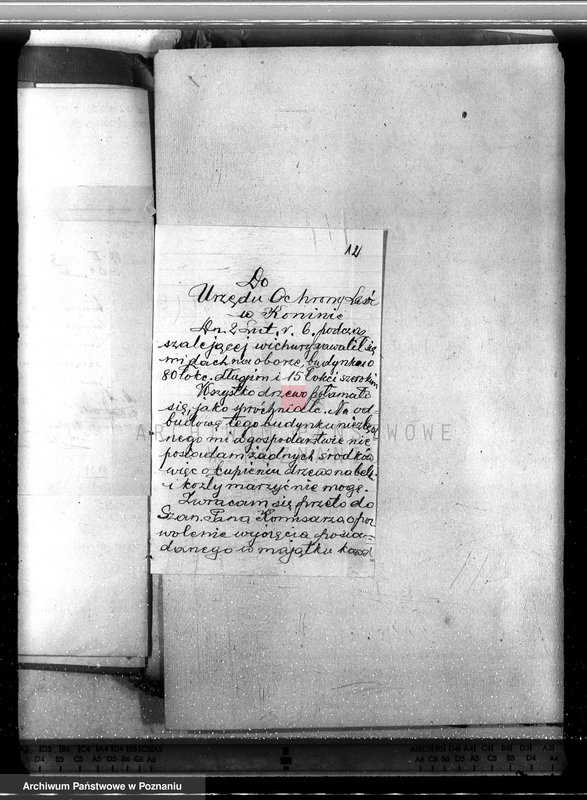 12
Do
Urzędu Ochrony Lasów
w Koninie
Dn. 2 Lut. r. b. podczas
szalejącej wichury zawalił się
mi dach na oborze, budynku o
80 łokc. długim i 15 łokci szerokim.
Wszystko drzewo połamało
się, jako spróchniałe. Na od
budowę tego budynku niezbęd
nego mi w gospodarstwie nie
posiadam żadnych środków
więc o kupieniu drzewa na belki
i kozły marzyć nie mogę.
Zwracam się przeto do
Szan. Pana Komisarza o poz
wolenie wycięcia posia-
danego w majątku
ARCHIWUM PAŃSTWOWE
A3 ID3 IB4 IC4 IA4 ID5 IB6 IC5 IA5
D4 B5 C5 A5 D6 B6 C6 A6
Archiwum Państwowe w Poznaniu